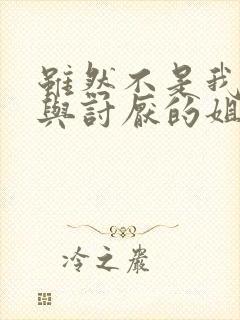 雖然不是我
與討厭的姐
冷之嚴